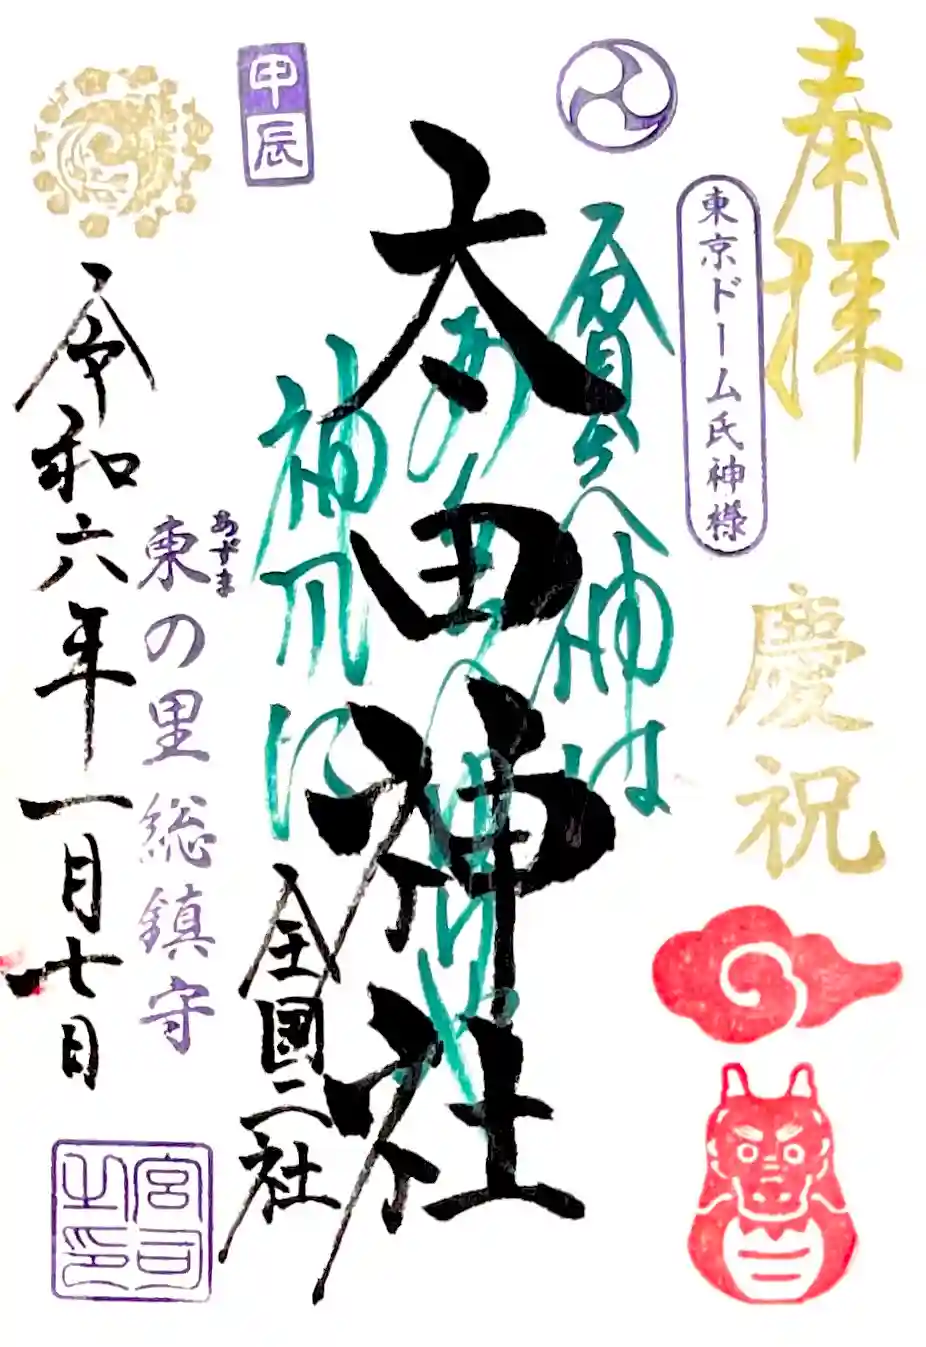 奉拝
慶祝
東京ドーム氏神様
太田神社
全國二社
甲辰
あずま
東の里 総鎮守
令和六年一月七日
宮司之印